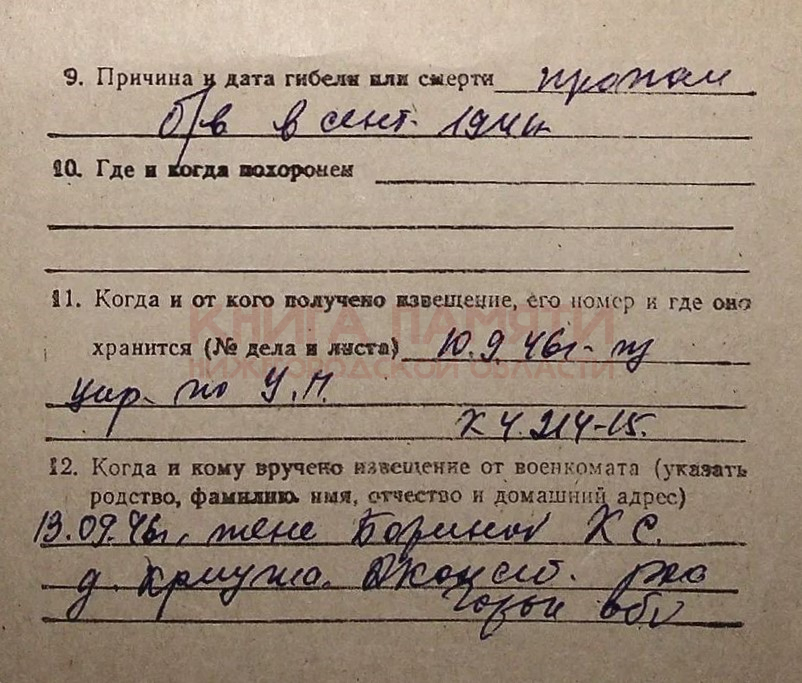 9. Причина и дата гибели или смерти пропал
б/в в сент. 1941г.
10. Где и когда похоронен
11. Когда и от кого получено извещение, его номер и где оно
КНИГА ПАМЯТИ
хранится (№ дела и листа) 10.9.46г. из
НИЖЕГОРОДСКОЙ ОБЛАСТИ
упр. по У.П.
12. Когда и кому вручено извещение от военкомата (указать
родство, фамилию, имя, отчество и домашний адрес)
13.09.46г. жене К С.
д. Криуша. рна
Горьк обл